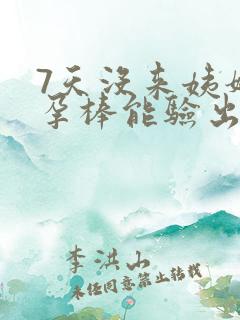 7天没来姨妈
孕棒能验出
李洪山
未经同意禁止转载